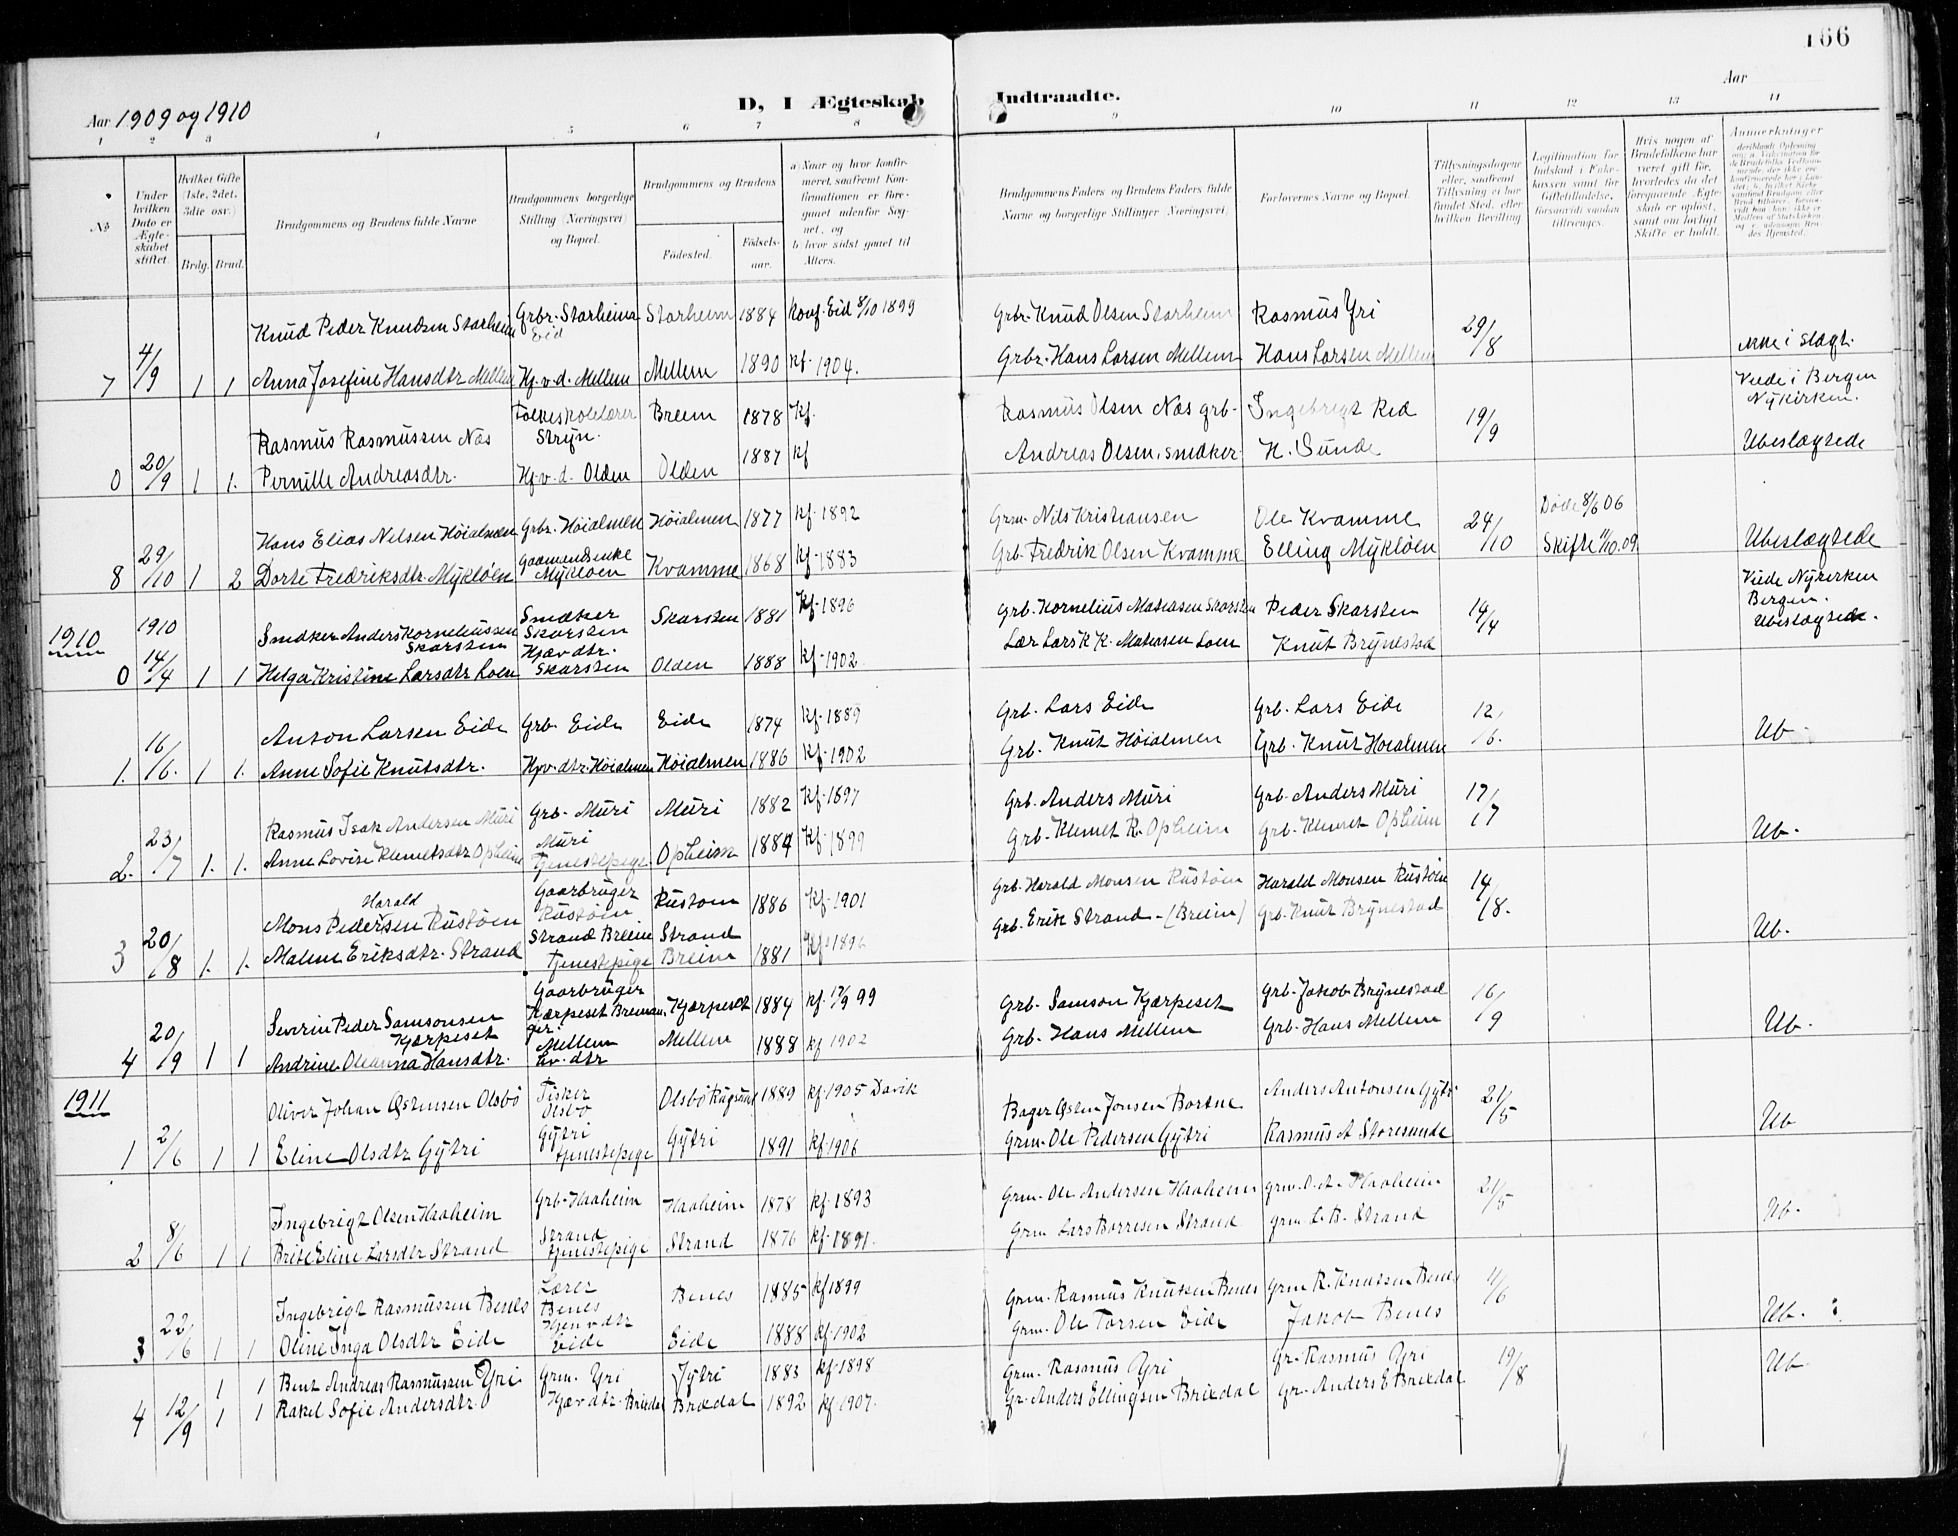 166
Aar 1909 og 1910
D, I Ægteskab Indtraadte.
Aar
1 2 3 4 5 6 7 8 9 10 11 12 13 14
No
Under hvilken Dato er Ægteskabet stiftet.
Hvilket Gifte (1ste, 2det, 3die osv.)
Brdg. Brud.
Brudgommens og Brudens fulde Navne
Brudgommens borgerlige Stilling (Næringsvei) og Bopæl.
Brudgommens og Brudens
Födested. Födselsaar.
a) Naar og hvor konfirmeret, saafremt Konfirmationen er foregaaet udenfor Sognet, og
b) hvor sidst gaaet til Alters.
Brudgommens Faders og Brudens Faders fulde Navne og borgerlige Stillinger (Næringsvei).
Forlovernes Navne og Bopæl.
Tillysningsdagene eller, saafremt Tillysning ei har fundet Sted, efter hvilken Bevilling.
Legitimation for Indskud i Enkekassen samt for Giftetilladelse, forsaavidt saadan tiltrænges.
Hvis nogen af Brudefolkene har været gift før, hvorledes da det foregaaende Ægteskab er opløst, samt om lovligt Skifte er holdt.
Anmerkninger
Knud Peder Knudsen Starheim Grbr. Starheim Eid Starheim 1884 Konf. Eid 8/10 1899 Grbr. Knud Olsen Starheim Rasmus Yri 29/8
7 4/9 1 1 Anna Josefine Hansdtr Mellem Hj.v.d. Mellem Mellem 1890 kf. 1904. Grbr. Hans Larsen Mellem Hans Larsen Mellem ikke i slægt.
Rasmus Rasmussen Nos Folkeskolelærer Stryn. Breim 1878 Kf. Rasmus Olsen Nos grb. Ingebrigt Red 19/9 Viede i Bergen Nykirken.
0 20/9 1 1. Pernille Andreasdtr. Hj.v.d. Olden Olden 1887 kf Andreas Olsen, snedker. H. Sunde Ubeslægtede
Hans Elias Nilsen Höialmen Grbr. Höialmen Höialmen 1877 kf. 1892 Grm. Nils Kristiansen Ole Kvamme 24/10 Døde 8/6 06
8 29/10 1 2 Dorte Fredriksdtr. Myklöen Gaardmandsenke Myklöen Kvamme 1868 kf. 1883 Grb. Fredrik Olsen Kvamme Elling Myklöen Skifte 11/10.09. Ubeslægtede
1910 1910 Snedker Anders Korneliussen Skarsten Snedker Skarsten Skarsten 1881 Kf. 1896 Grb. Kornelius Matiasen Skarsten Peder Skarsten 14/4 Viede Nykirken Bergen.
0 14/4 1 1 Helga Kristine Larsdtr Loen Hjævdtr. Skarsten Olden 1888 kf. 1902. Lær Lars K. K. Matiasen Loen Knut Brynestad Ubeslægtede.
Anton Larsen Eide Grb. Eide Eide 1874 kf. 1889 Grb. Lars Eide Grb. Lars Eide 12/6.
1. 16/6. 1 1. Anne Sofie Knutsdtr. Hjv.dtr. Höialmen Höialmen 1886 kf. 1902 Grb. Knut Höialmen Grb. Knut Höialmen Ub.
Rasmus Isak Andersen Muri Grb. Muri Muri 1882 Kf. 1897 Grb. Anders Muri Grb. Anders Muri 17/7
2. 23/7 1. 1. Anne Lovise Klemetsdtr Opheim Muri tjenestepige Opheim 1884 Kf. 1899 Grb. Klemet R. Opheim Grb. Klemet Opheim Ub.
Mons Harald Pedersen Rustöen Gaarbruger Rustöen Rustöen 1886 Kf. 1901 Grb. Harald Monsen Rustöen Harald Monsen Rustöen 14/8.
3 20/8 1. 1. Malene Eriksdtr. Strand Strand Breim tjenestepige Strand Breim 1881 Kf. 1896 Grb. Erik Strand - (Breim) Grb. Knut Brynestad Ub.
Severin Peder Samsonsen Kjærpeset Gaarbruger Kjærpeset Breman. ger. Kjærpeset 1884 kf. 17/9 99 Grb. Samson Kjærpeset Grb. Jakob Brynestad 16/9
4 20/9 1 1 Andrine Oleanna Hansdtr. Mellem hv.dtr Mellem 1888 kf 1902 Grb. Hans Mellem Grb. Hans Mellem Ub.
1911 Oliver Johan Östensen Olsbö Fisker Olsbö Olsbö 1889 kf. 1905 Davik Bager Östen Jonsen Bortne Anders Antonsen Gytri 21/5
1 2/6 1 1 Eline Olsdtr Gytri Gytri tjenestepige Gytri 1891 kf. 1906 Grm. Ole Pedersen Gytri Rasmus A Storesunde Ub
Ingebrigt Olsen Haaheim Grb. Haaheim Haaheim 1878 kf. 1893 Grm. Ole Andersen Haaheim grm. O. A. Haaheim 21/5
2 8/6 1 1 Brite Eline Larsdtr Strand Strand tjenestepige Strand 1876 kf. 1891. Grm Lars Borresen Strand grm L. B. Strand Ub.
Ingebrigt Rasmussen Benes Lærer Benes Benes 1885 kf 1899 Grm. Rasmus Knutsen Benes Grm R. Knutsen Benes 11/6
3 22/6 1 1 Oline Inga Olsdtr Eide Hjemv dtr Eide Eide 1888 kf. 1902 Grm. Ole Torsen Eide Jakob Benes Ub.
1 1 Bent Andreas Rasmussen Yri Grm. Yri Jytri 1883 kf. 1898 Grm. Rasmus Yri Gr. Rasmus Yri 19/8 Ub
4 12/9 1 1 Rakel Sofie Andersdtr. Hjæv dtr. Brixdal Brixdal 1892 kf. 1907. Gr. Anders Ellingsen Brixdal Gr. Anders E Brixdal